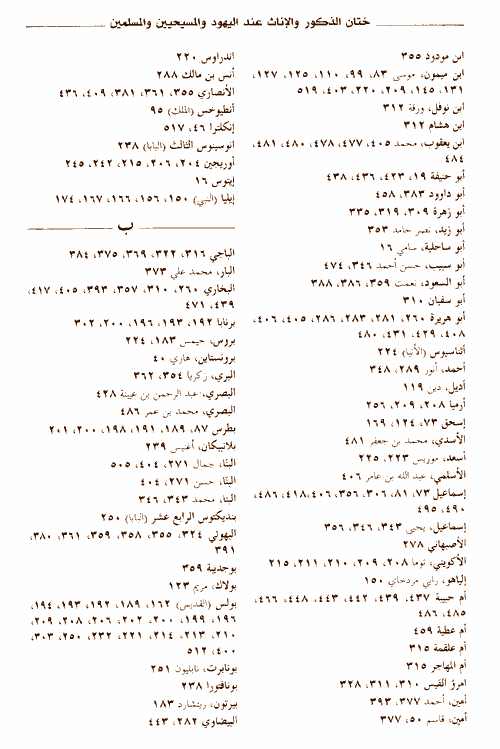 ختان الذكور والإناث عند اليهود والمسيحيين والمسلمين
ابن مودود ٣٥٥
ابن ميمون، موسى ٨٣، ٩٩، ١١٠، ١٢٥، ١٢٧،
١٣١، ١٤٥، ٢٠٩، ٢٢٠، ٤٠٣، ٥١٩
ابن نوفل، ورقة ٣١٢
ابن هشام ٣١٢
ابن يعقوب، محمد ٤٠٥، ٤٧٧، ٤٧٨، ٤٨٠، ٤٨١،
٤٨٤
أبو حنيفة ١٩، ٤٢٣، ٤٣٦، ٤٣٨
أبو داوود ٣٨٣، ٤٥٨
أبو زهرة ٣٠٩، ٣١٩، ٣٣٥
أبو زيد، نصر حامد ٣٥٣
أبو ساحلية، سامي ١٦
أبو سبيب، حسن أحمد ٣٤٦، ٤٧٤
أبو السعود، نعمت ٣٥٩، ٣٨٦، ٣٨٨
أبو سفيان ٣١٠
أبو هريرة ٢٦٠، ٢٨١، ٢٨٣، ٢٨٦، ٤٠٥، ٤٠٦،
٤٠٨، ٤٢٩، ٤٣١، ٤٨٠
أثناسيوس (الأنبا) ٢٢٤
أحمد، أنور ٢٨٩، ٣٤٨
أديل، دين ١١٩
أرميا ٢٠٨، ٢٠٩، ٢٥٦
إسحق ٧٣، ١٢٤، ١٦٩
الأسدي، محمد بن جعفر ٤٨١
أسعد، موريس ٢٢٣، ٢٢٥
الأسلمي، عبد الله بن عامر ٤٠٦
إسماعيل ٧٣، ٨١، ٣٠٦، ٣٥٦، ٤٠٦، ٤١٨، ٤٨٦،
٤٩٠، ٤٩٥
إسماعيل، يحيى ٣٤٣، ٣٤٦، ٣٥٦
الأصبهاني ٢٧٨
الأكويني، توما ٢٠٨، ٢٠٩، ٢١٠، ٢١١، ٢١٥
إلياهو، رابي مردخاي ١٥٠
أم حبيبة ٤٣٧، ٤٣٩، ٤٤٢، ٤٤٣، ٤٤٨، ٤٦٦،
٤٨٥، ٤٨٦
أم عطية ٤٥٩
أم علقمة ٣١٥
أم المهاجر ٣١٥
امرؤ القيس ٣١٠، ٣١١، ٣٢٨
أمين، أحمد ٣٧٧، ٣٩٣
أمين، قاسم ٥٠، ٣٧٧
اندراوس ٢٢٠
أنس بن مالك ٢٨٨
الأنصاري ٣٥٥، ٣٦١، ٣٨١، ٤٠٩، ٤٣٦
أنطيوخس (الملك) ٩٥
إنكلترا ٤٦، ٥١٧
انوسينوس الثالث (البابا) ٢٣٨
أوريجين ٢٠٤، ٢٠٦، ٢١٥، ٢٤٢، ٢٤٥
إيتوس ١٦
إيليا (النبي) ١٥٠، ١٥٦، ١٦٦، ١٦٧، ١٧٤
ب
الباجي ٣١٦، ٣٢٢، ٣٦٩، ٣٧٥، ٣٨٤
البار، محمد علي ٣٧٣
البخاري ٢٦٠، ٣١٠، ٣٥٧، ٣٩٣، ٤٠٥، ٤١٧،
٤٣٩، ٤٧١
برنابا ١٩٢، ١٩٣، ١٩٦، ٢٠٠، ٣٠٢
بروس، جيمس ١٨٣، ٢٢٤
برونستاين، هاري ٤٠
البري، زكريا ٣٥٤، ٣٦٢
البصري، عبد الرحمن بن عيينة ٤٢٨
البصري، محمد بن عمر ٤٨٦
بطرس ٨٧، ١٨٩، ١٩١، ١٩٨، ٢٠٠، ٢٠١
بلانبيكان، أغنيس ٢٣٩
البنا، جمال ٢٧١، ٤٠٤، ٥٠٥
البنا، حسن ٢٧١، ٤٠٤
البنا، محمد ٣٤٣، ٣٤٦
بنديكتوس الرابع عشر (البابا) ٢٥٠
البهوتي ٣٢٤، ٣٥٥، ٣٥٨، ٣٥٩، ٣٦١، ٣٨٠،
٣٩١
بوجديبة ٣٥٩
بولاك، مريم ١٢٣
بولس (القديس) ١٦٢، ١٨٩، ١٩٢، ١٩٣، ١٩٤،
١٩٦، ١٩٩، ٢٠٠، ٢٠٢، ٢٠٦، ٢٠٨، ٢٠٩،
٢١٠، ٢١٣، ٢١٤، ٢٢١، ٢٣٢، ٢٥٠، ٣٠٣،
٤٠٠، ٥١٢
بونابرت، نابليون ٢٥١
بونافتورا ٢٣٨
بيرتون، ريتشارد ١٨٣
البيضاوي ٢٨٢، ٤٤٣